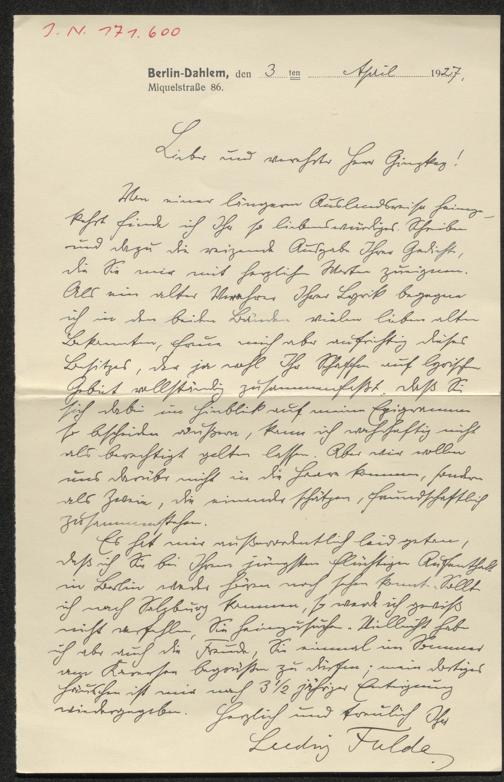 J. N. 171.600
Berlin-Dahlem, den 3 ten April 1927.
Miquelstraße 86.
Lieber und verehrter Herr Ginzkey!
Von einer längern Auslandsreise heimge-
kehrt finde ich Ihr so liebenswürdiges Schreiben
und dazu die reizende Ausgabe Ihrer Gedichte,
die Sie mir mit herzlichen Worten zueignen.
Als ein alter Verehrer Ihrer Lyrik begegne
ich in den beiden Bänden vielen lieben alten
Bekannten, freue mich aber aufrichtig dieses
Besitzes, der ja wohl Ihr Schaffen auf lyrischem
Gebiet vollständig zusammenfaßt. Daß Sie
sich dabei im Hinblick auf meine Epigramme
so bescheiden äußern, kann ich wahrhaftig nicht
als berechtigt gelten lassen. Aber wir wollen
uns darüber nicht in die Haare kommen, sondern
als Zweie, die einander schätzen, freundschaftlich
zusammenstehen.
Es hat mir außerordentlich leid getan,
daß ich Sie bei Ihrem jüngsten flüchtigen Aufenthalt
in Berlin weder hören noch sehen konnte. Sollte
ich nach Salzburg kommen, so werde ich gewiß
nicht verfehlen, Sie heimzusuchen. Vielleicht habe
ich aber auch die Freude, Sie einmal im Sommer
am Karersee begrüßen zu dürfen; mein dortiges
Häuschen ist mir nach 3 1/2 jähriger Enteignung
wiedergegeben. Herzlich und treulich Ihr
Ludwig Fulda